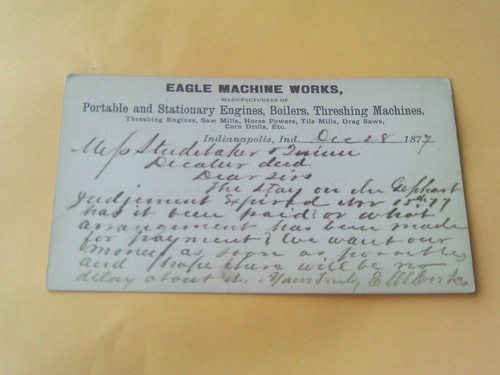 EAGLE MACHINE WORKS,
MANUFACTURERS OF
Portable and Stationary Engines, Boilers, Threshing Machines,
Threshing Engines, Saw Mills, Horse Powers, Tile Mills, Drag Saws,
Corn Drills, Etc.
Indianapolis, Ind. Dec 28 1877
Studebaker & Quinn
Decatur Ind
Dear Sirs
The Stay on the Gephart
Judgement Expired Nov 15th 77
has it been paid? or what
arrangement has been made
for payment? We want our
money as soon as possible
and hope there will be no
delay about it. Yours Truly E M Works